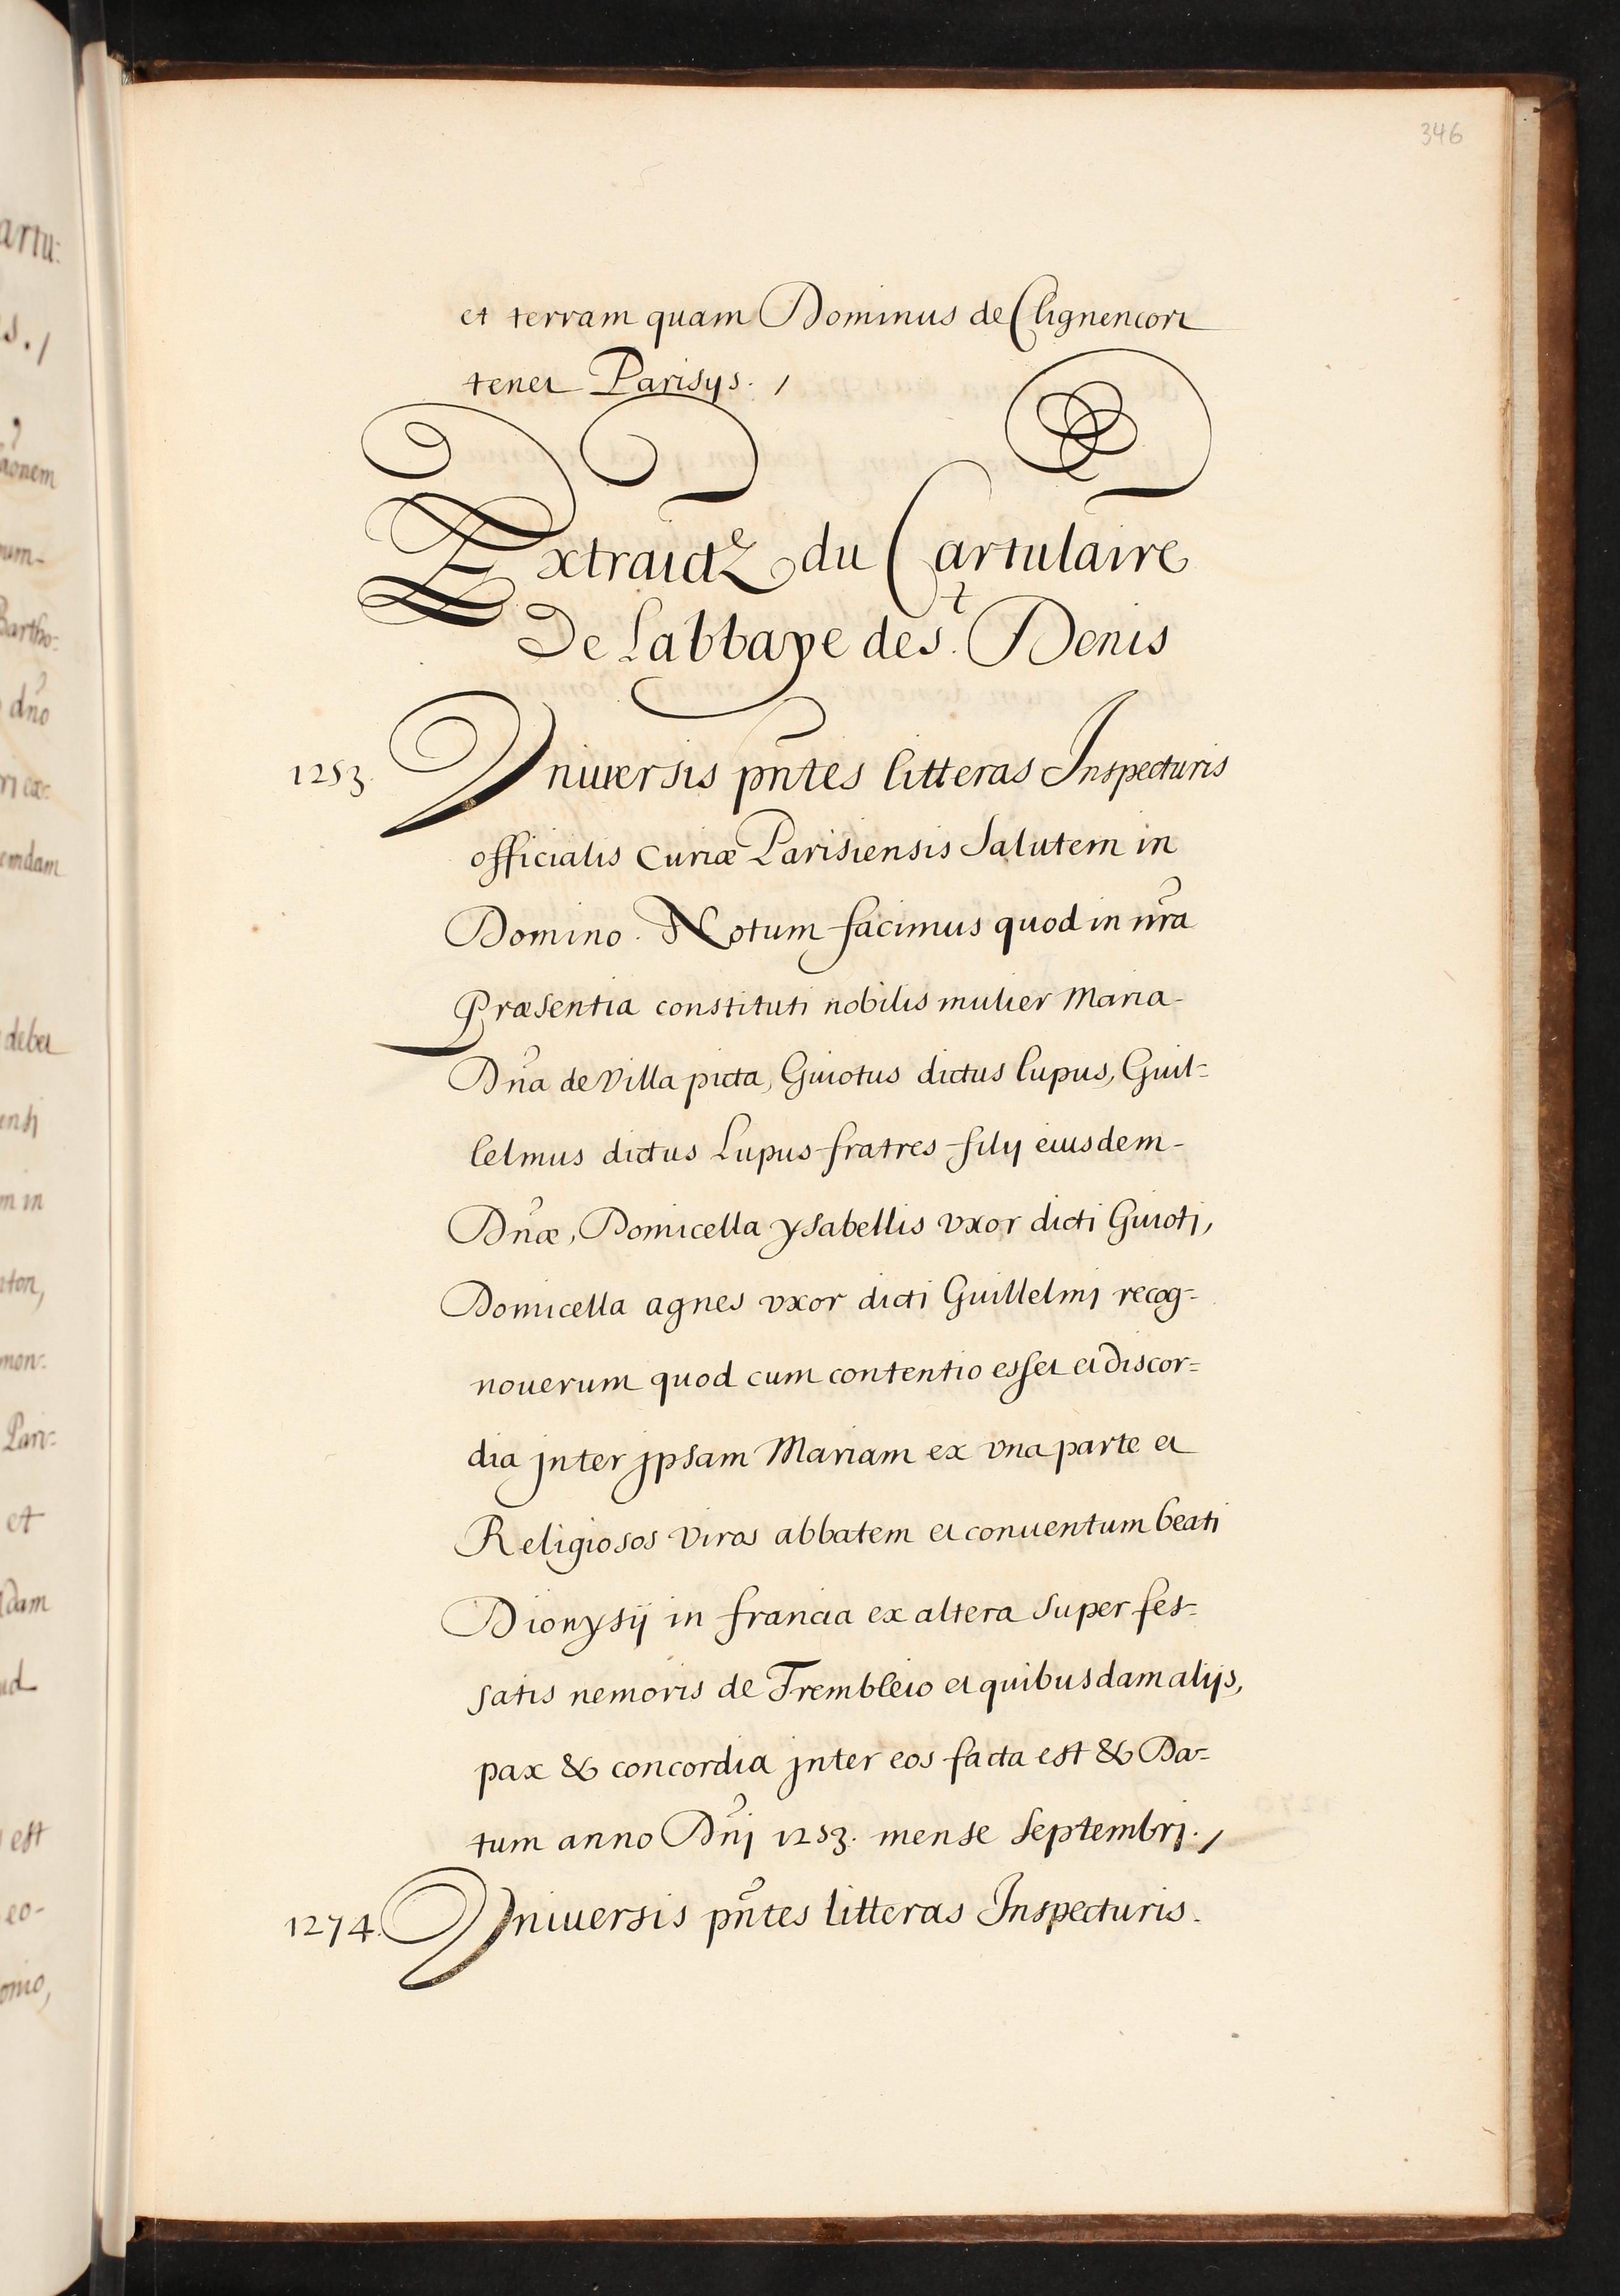 346
et terram quam Dominus de Clignencort
tenet Parisys. /
Extraictz du Cartulaire
De Labbaye de St. Denis
1253. Vniuersis pn̄tes litteras Inspecturis
officialis Curiæ Parisiensis Salutem in
Domino. Notum facimus quod in nr̄a
Præsentia constituti nobilis mulier Maria-
Dn̄a de Villa picta, Guiotus dictus lupus, Guil=
lelmus dictus Lupus fratres filij eiusdem-
Dn̄æ, Domicella ysabellis vxor dicti Guiotj,
Domicella agnes vxor dicti Guillelmj recog=
nouerum quod cum contentio esset et discor=
dia jnter jpsam Mariam ex vna parte et
Religiosos Viros abbatem et conuentum beati
Dionysij in francia ex altera Super fes=
satis nemoris de Trembleio et quibusdam alijs,
pax & concordia jnter eos facta est & Da=
tum anno Dn̄j 1253. mense Septembrj. /
1274. Vniuersis pn̄tes litteras Inspecturis.